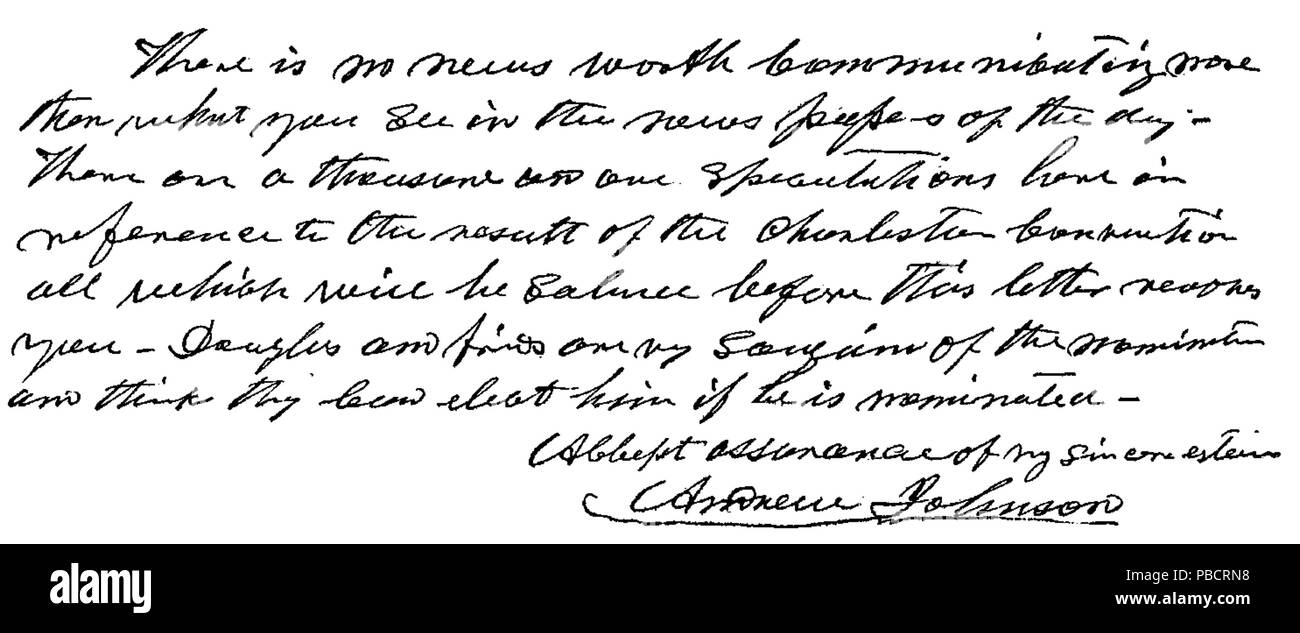 There is no news worth communicating more
than what you see in the news papers of the day –
There are a thousand and one speculations here in
reference to the result of the Charleston Convention
all which will be before this letter reaches
you – Douglas and friends are very sanguine of the nomination
and think they can elect him if he is nominated –
Accept assurance of my sincere esteem
Andrew Johnson
alamy
Image ID: PBCRN8
www.alamy.com